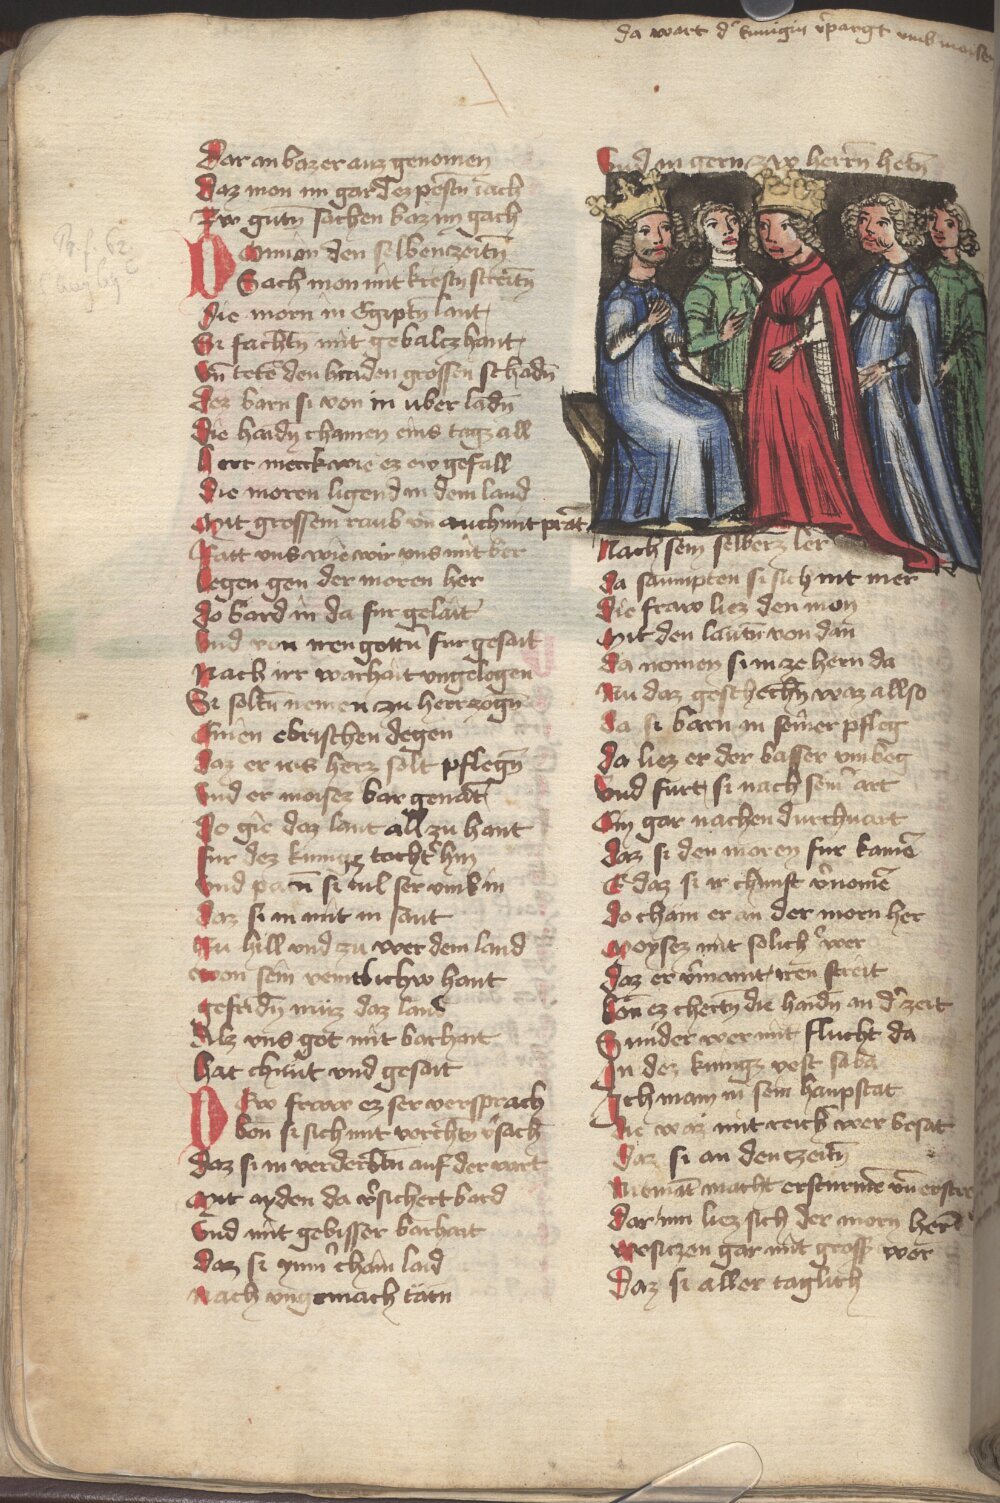 da wart d' kunigin v'pargt umb moisen
Dar an baz er auz genomen
Daz mon im gar dez pesten iach
Zw gutn sachen baz im gach
Da nu in den selben zeitn
Sach mon mit krestn streitn
Die morn in Egiptn lant
Si fachtn mit gebalczhant
Vn tete den haiden grossen schadn
Dez barn si von in uber ladn
Die haidn chamen eins tagz all
Herr merk wie ez ew gefall
Die moren ligend in dem land
Mit grossem raub vn auch mit prant
Ratt vns wie wir vns mit ber
Legen gen der moren her
Do bard in da fur gelait
Vnd von iren gottn fur gesait
Nach irr warhait vngelogen
Si soltn nemen zu herczogn
Einen ebrischen degen
Daz er irs herz solt pflegn
Vnd er moisez bar genant
Do gie daz lant all zu hant
Fur dez kunigz tocht' hin
Vnd patn si vil ser vmb in
Daz si in mit in sant
Zu hilf vnd zu wer dem land
Won sein veintlichw hant
Gefridn muz daz land
Alz vns got mit barhait
Hat chunt vnd gesait
Dw fraw ez ser versprach
bon si sich mit vorchtn v'sach
Daz si in verderbtn auf der vart
Mit ayden da v'sichert bard
Vnd mit gebisser barhait
Daz si ymm' chain laid
Nach vngemach tätn
Vnd in gern zw herrn hetn
Nach sein selberz ler
Da saumpten si sich nit mer
Die fraw liez den mon
Mit den lautn von dan
Da nomen si in ze hern da
Nu daz geschechn waz allso
Da si barn in seiner pfleg
Da liez er der basser vmbeg
Vnd furt si nach seim art
Ein gar nachen durchuart
Daz si den moren fur kame
E daz si ir chunft v'nome
Do cham er an der morn her
Moysez mit solich' wer
Daz er v'mant iren streit
bon ez chertn die haidn an d' zeit
Sunder wer mit flucht da
In dez kunigz vest saba
Ich main in sein haupstat
Die waz mit reich' wer besat
Daz si an den zeitn
Niemat macht ersturme vn erstre
Dar inn liez sich der morn her
Besiczen gar mit gross wer
Daz si aller taglich